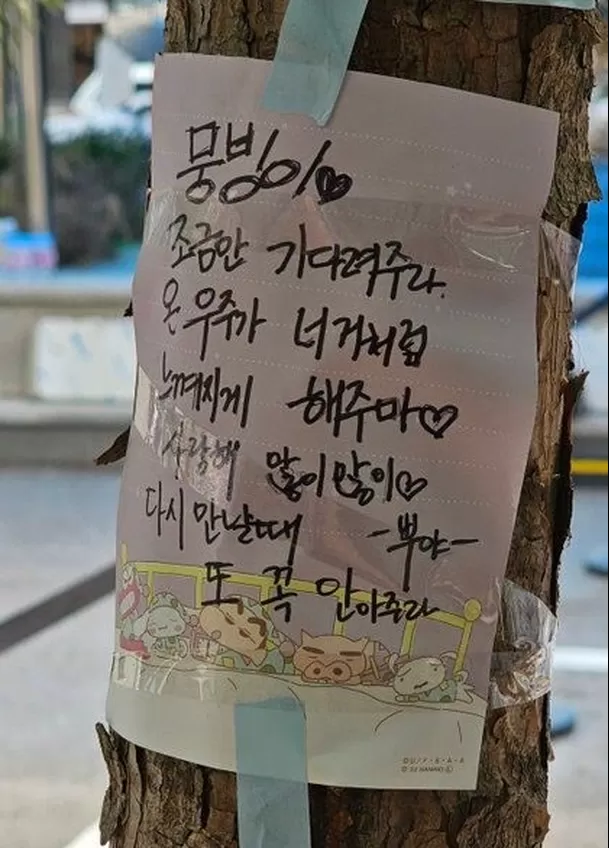 뭉빙이♥
조금만 기다려주라.
온 우주가 너거처럼
느껴지게 해주마♡
사랑해 많이많이♡
다시 만날때 -뿌야-
또 꼭 안아주라